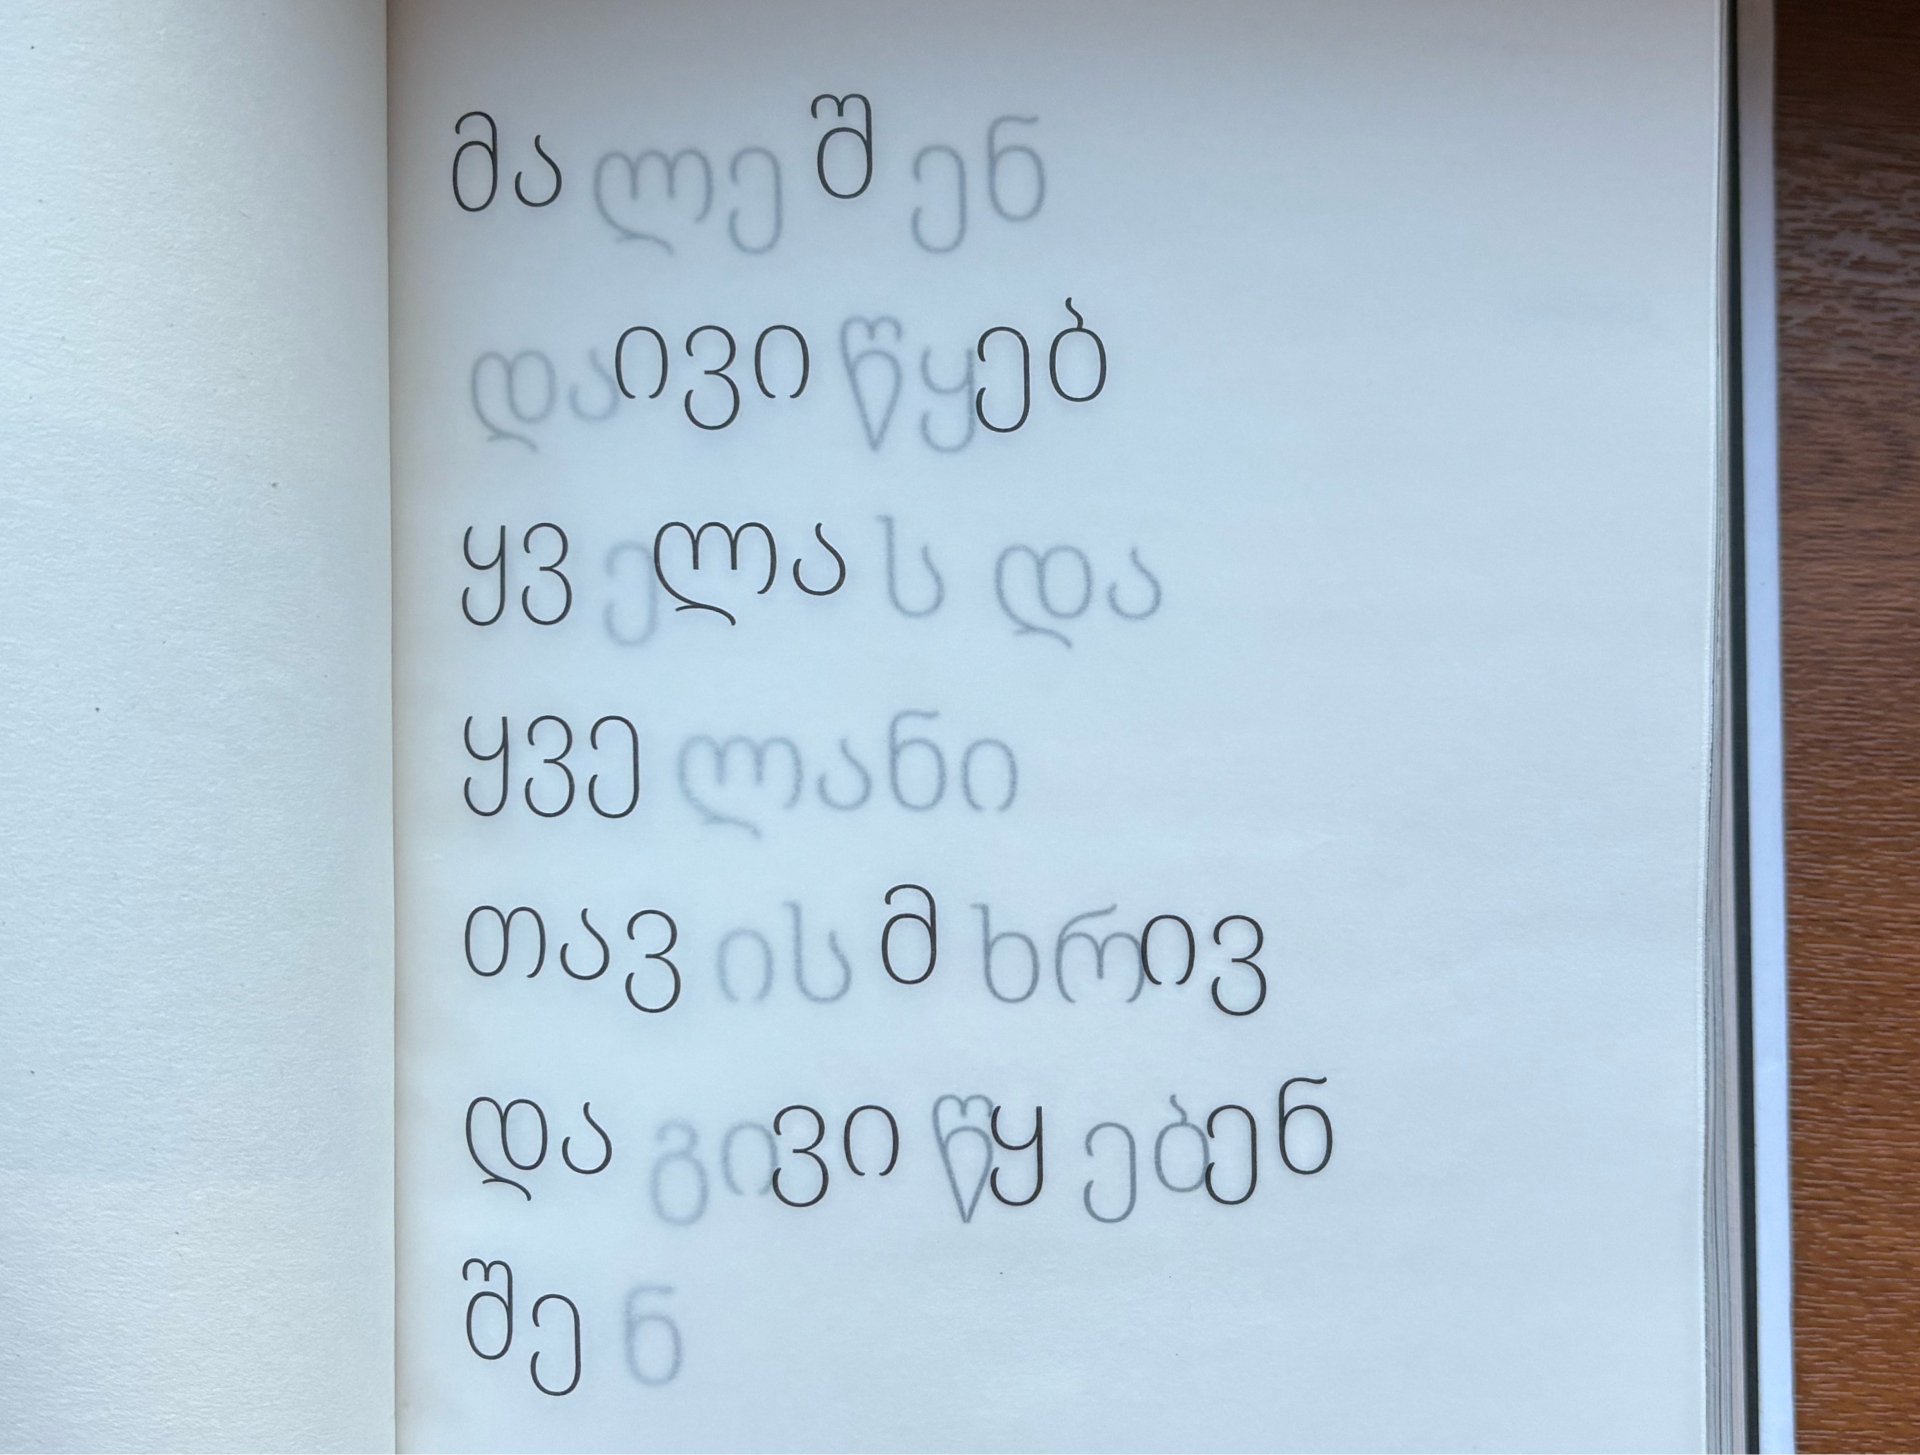 მალე შენ
დაივიწყებ
ყველას და
ყველანი
თავის მხრივ
დაგივიწყებენ
შენ